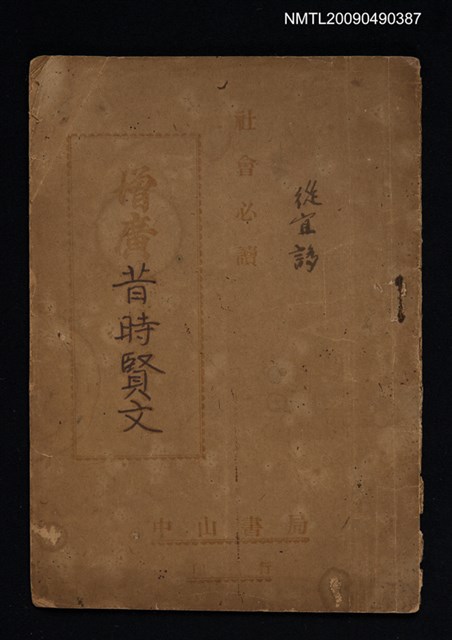 NMTL20090490387
社會必讀
增廣
昔時賢文
中山書局